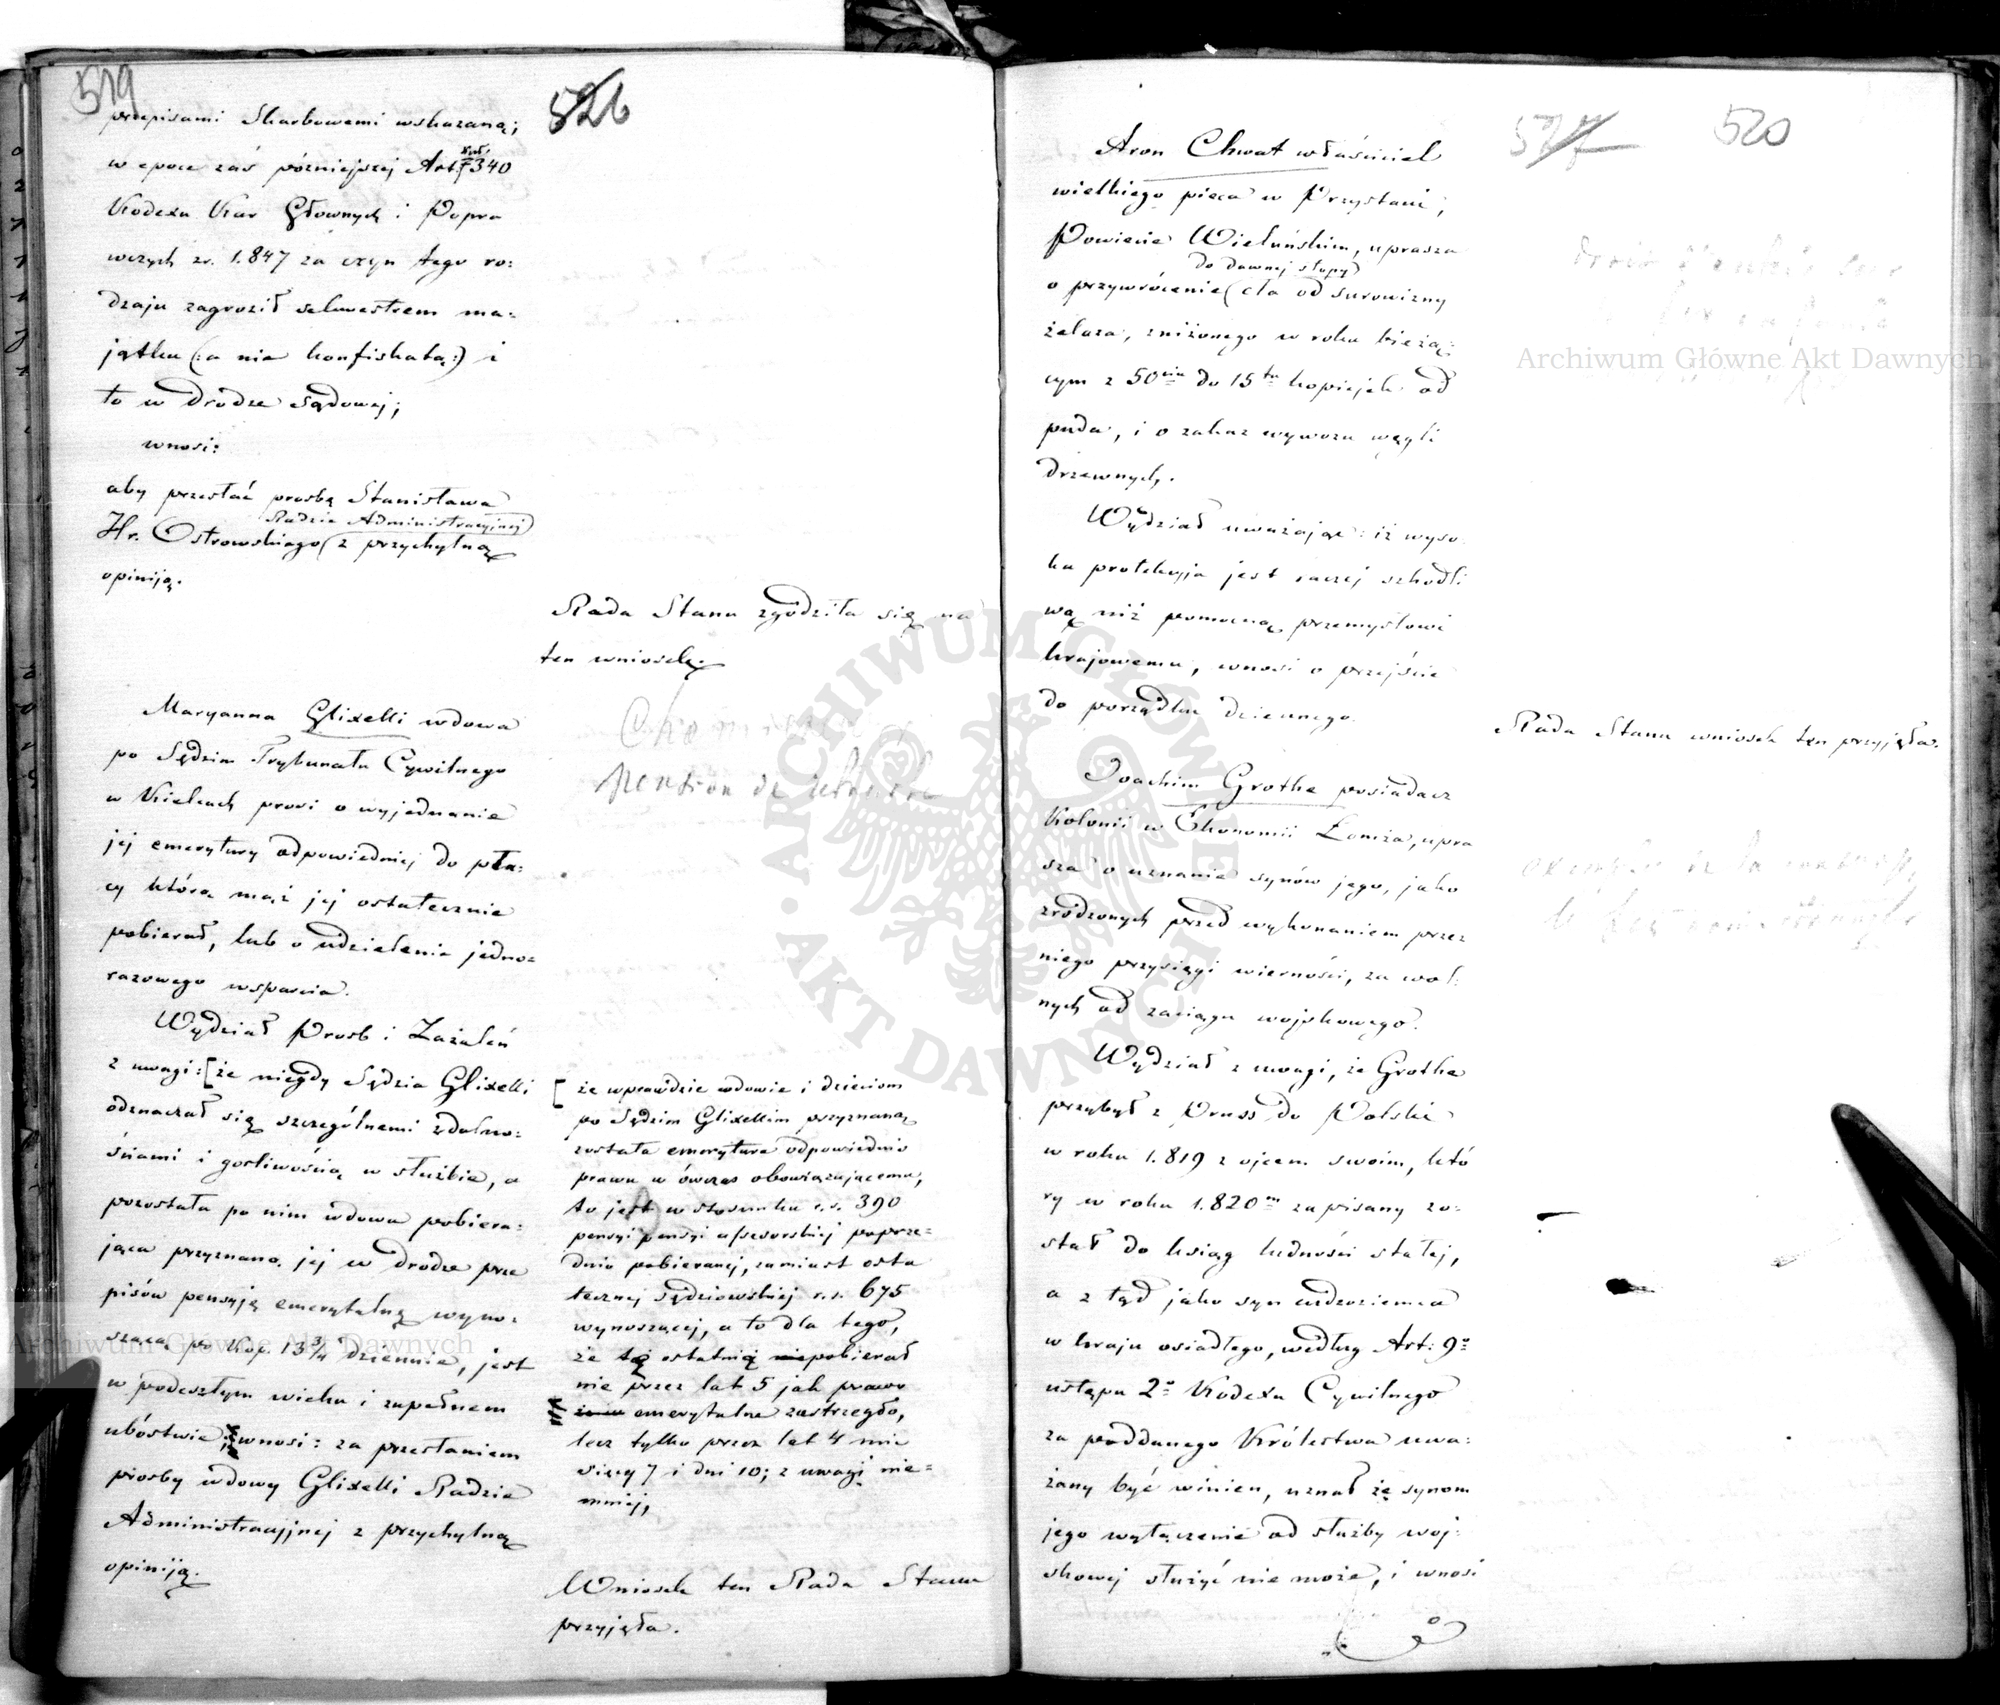 519
526
przepisami Skarbowemi wskazaną;
w epoce zaś późniejszej Art. 340
Kodexu Kar Głownych i Popra
wczych z r. 1.847 za czyn tego ro:
dzaju zagroził sekwestrem ma:
jątku (:a nie konfiskatą:) i
to w drodze sądowej;
wnosi:
aby przesłać prosbę Stanisława
Radzie Administracyjnej
Hr. Ostrowskiego z przychylną
opiniją.
Rada Stanu zgodziła się na
ten wniosek.
Maryanna Glixelli wdowa
po Sędzim Trybunału Cywilnego
w Kielcach prosi o wyjednanie
jej emerytury odpowiedniej do pła:
cy którą mąż jej ostatecznie
pobierał, lub o udzielenie jedno:
razowego wsparcia.
pension de retraite
Wydział Prosb i Zażaleń
z uwagi: [że niegdy Sędzia Glixelli
odznaczał się szczególnemi zdolno:
ściami i gorliwością w służbie, a
pozostała po nim wdowa pobiera:
jąca przyznaną jej w drodze prze
pisów pensyją emerytalną wyno:
szącą po kop. 13¾ dziennie, jest
w podeszłym wieku i zupełnem
ubóstwie; wnosi: za przesłaniem
prosby wdowy Glixelli Radzie
Administracyjnej z przychylną
opiniją.
[ że wprawdzie wdowie i dzieciom
po Sędzim Glixellim przyznaną
została emerytura odpowiednio
prawu w ówczas obowiązującemu,
to jest w stosunku r.s. 390
pensyi pensyi assesorskiej poprze:
dnio pobieranej, zamiast osta
tecznej Sędziowskiej r.s. 675
wynoszącej, a to dla tego,
że tę ostatnią niepobierał
nie przez lat 5 jak prawo
emerytalne zastrzegło,
lecz tylko przez lat 4 mie
sięcy 7 i dni 10; z uwagi nie:
mniej,
Wniosek ten Rada Stanu
przyjęła.
527
520
Aron Chwat właściciel
wielkiego pieca w Przystani,
Powiecie Wieluńskim, uprasza
do dawnej stopy
o przywrócenie cła od surowizny
żelaza, zniżonego w roku bieżą:
cym z 50ciu do 15tu kopiejek od
puda, i o zakaz wywozu węgli
drzewnych.
Wydział uważając: iż wyso
ka protekcyja jest raczej szkodli
wą niż pomocną przemysłowi
krajowemu, wnosi o przejście
do porządku dziennego.
Rada Stanu wniosek ten przyjęła.
Joachim Grothe posiadacz
Kolonii w Ekonomii Łomża, upra
sza o uznanie synów jego, jako
zrodzonych przed wykonaniem przez
niego przysięgi wierności, za wol:
nych od zaciągu wojskowego.
Wydział z uwagi, że Grothe
przybył z Pruss do Polski
w roku 1.819 z ojcem swoim, któ
ry w roku 1.820m zapisany zo:
stał do ksiąg ludności stałej,
a z tąd jako syn cudzoziemca
w kraju osiadłego, według Art: 9o
ustępu 2o Kodexu Cywilnego
za poddanego Królestwa uwa:
żany być winien, uznał że synom
jego wyłączenie od służby woj:
skowej służyć nie może, i wnosi
Archiwum Główne Akt Dawnych
Archiwum Główne Akt Dawnych
ARCHIWUM GŁÓWNE
AKT DAWNYCH